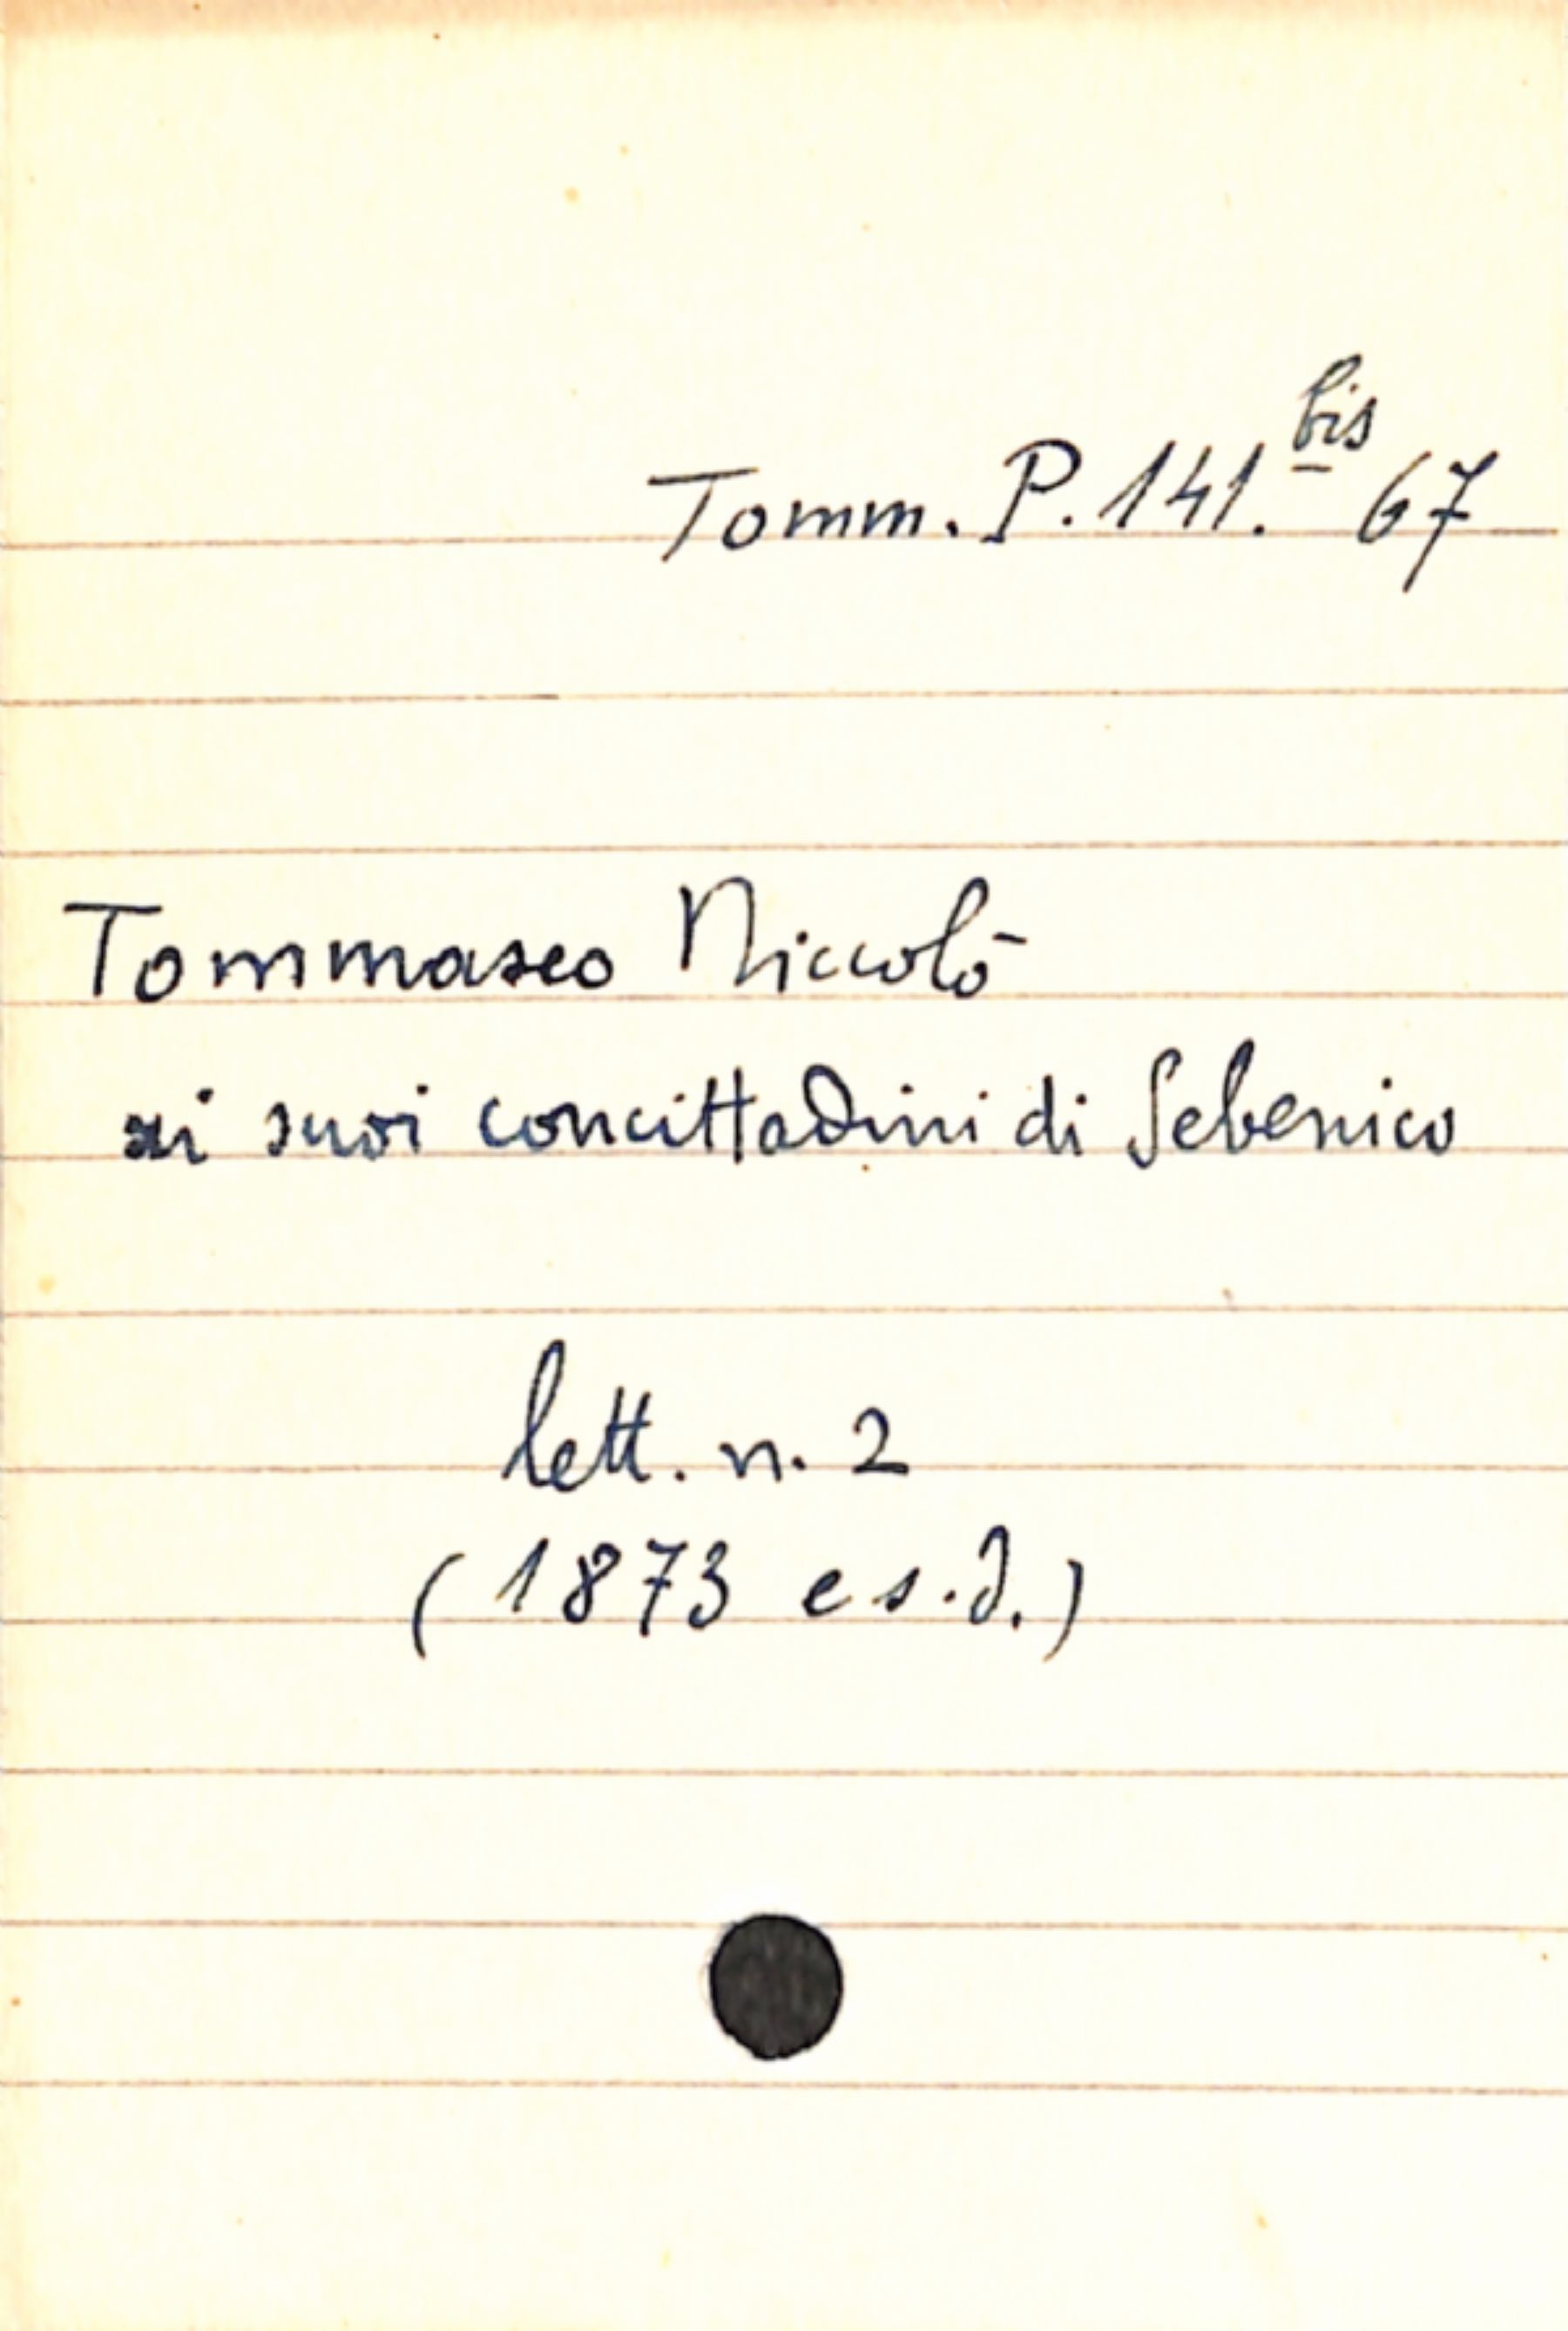 Tomm. P. 141.bis 67
Tommaseo Niccolò
ai suoi concittadini di Sebenico
lett. n. 2
(1873 e s.d.)